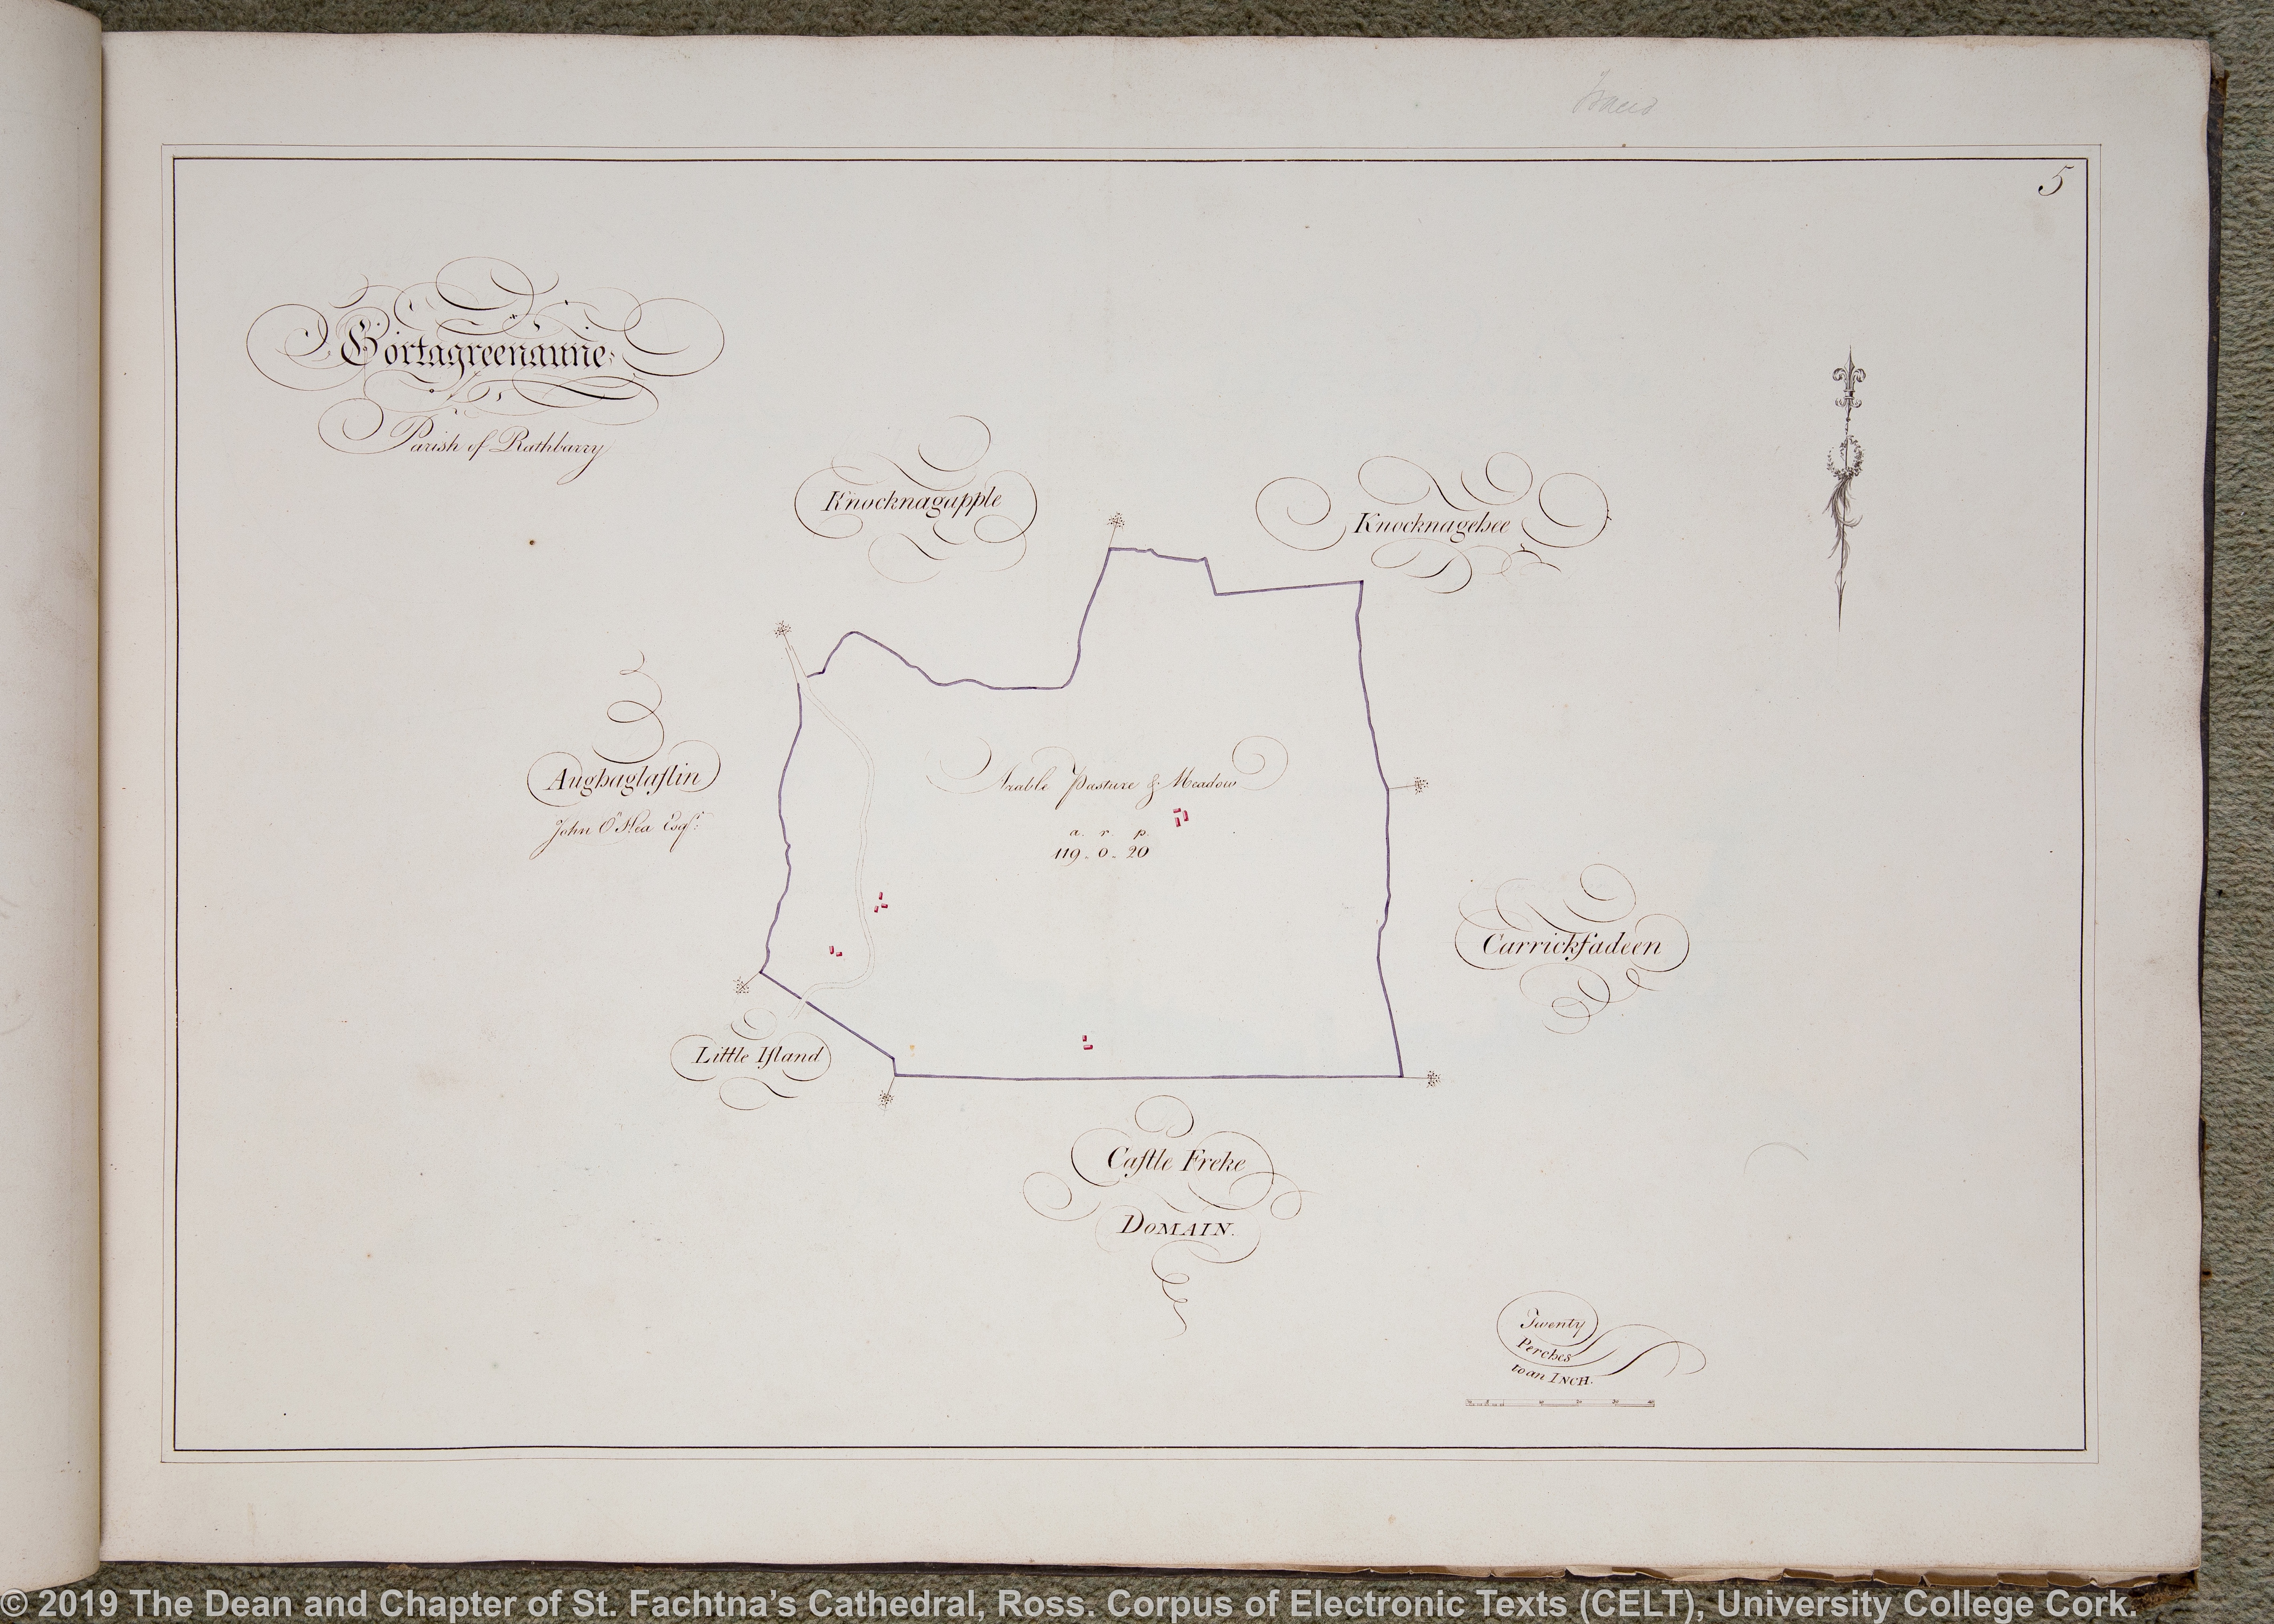 5
Gortagreenanne
Parish of Rathbarry
Knocknagapple
Knocknagehee
Aughaglaſlin
John O'Hea Esqr.
Arable Pasture & Meadow
a. r. p.
119. 0. 20
Carrickfadeen
Little Iſland
Caſtle Freke
DOMAIN.
Twenty
Perches
to an INCH.
© 2019 The Dean and Chapter of St. Fachtna's Cathedral, Ross. Corpus of Electronic Texts (CELT), University College Cork.